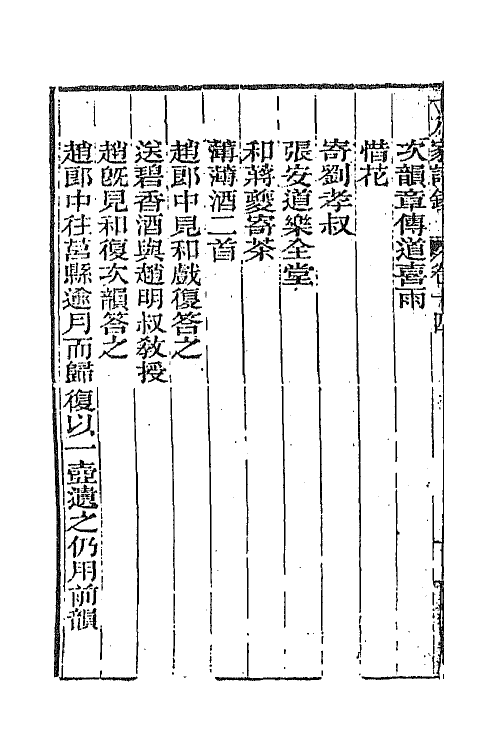 八家詩鈔 卷十四
次韻章傳道喜雨
惜花
寄劉孝叔
張安道樂全堂
和蔣夔寄茶
薄薄酒二首
趙郎中見和戲復答之
送碧香酒與趙明叔敎授
趙旣見和復次韻答之
趙郎中往莒縣逾月而歸復以一壺遺之仍用前韻